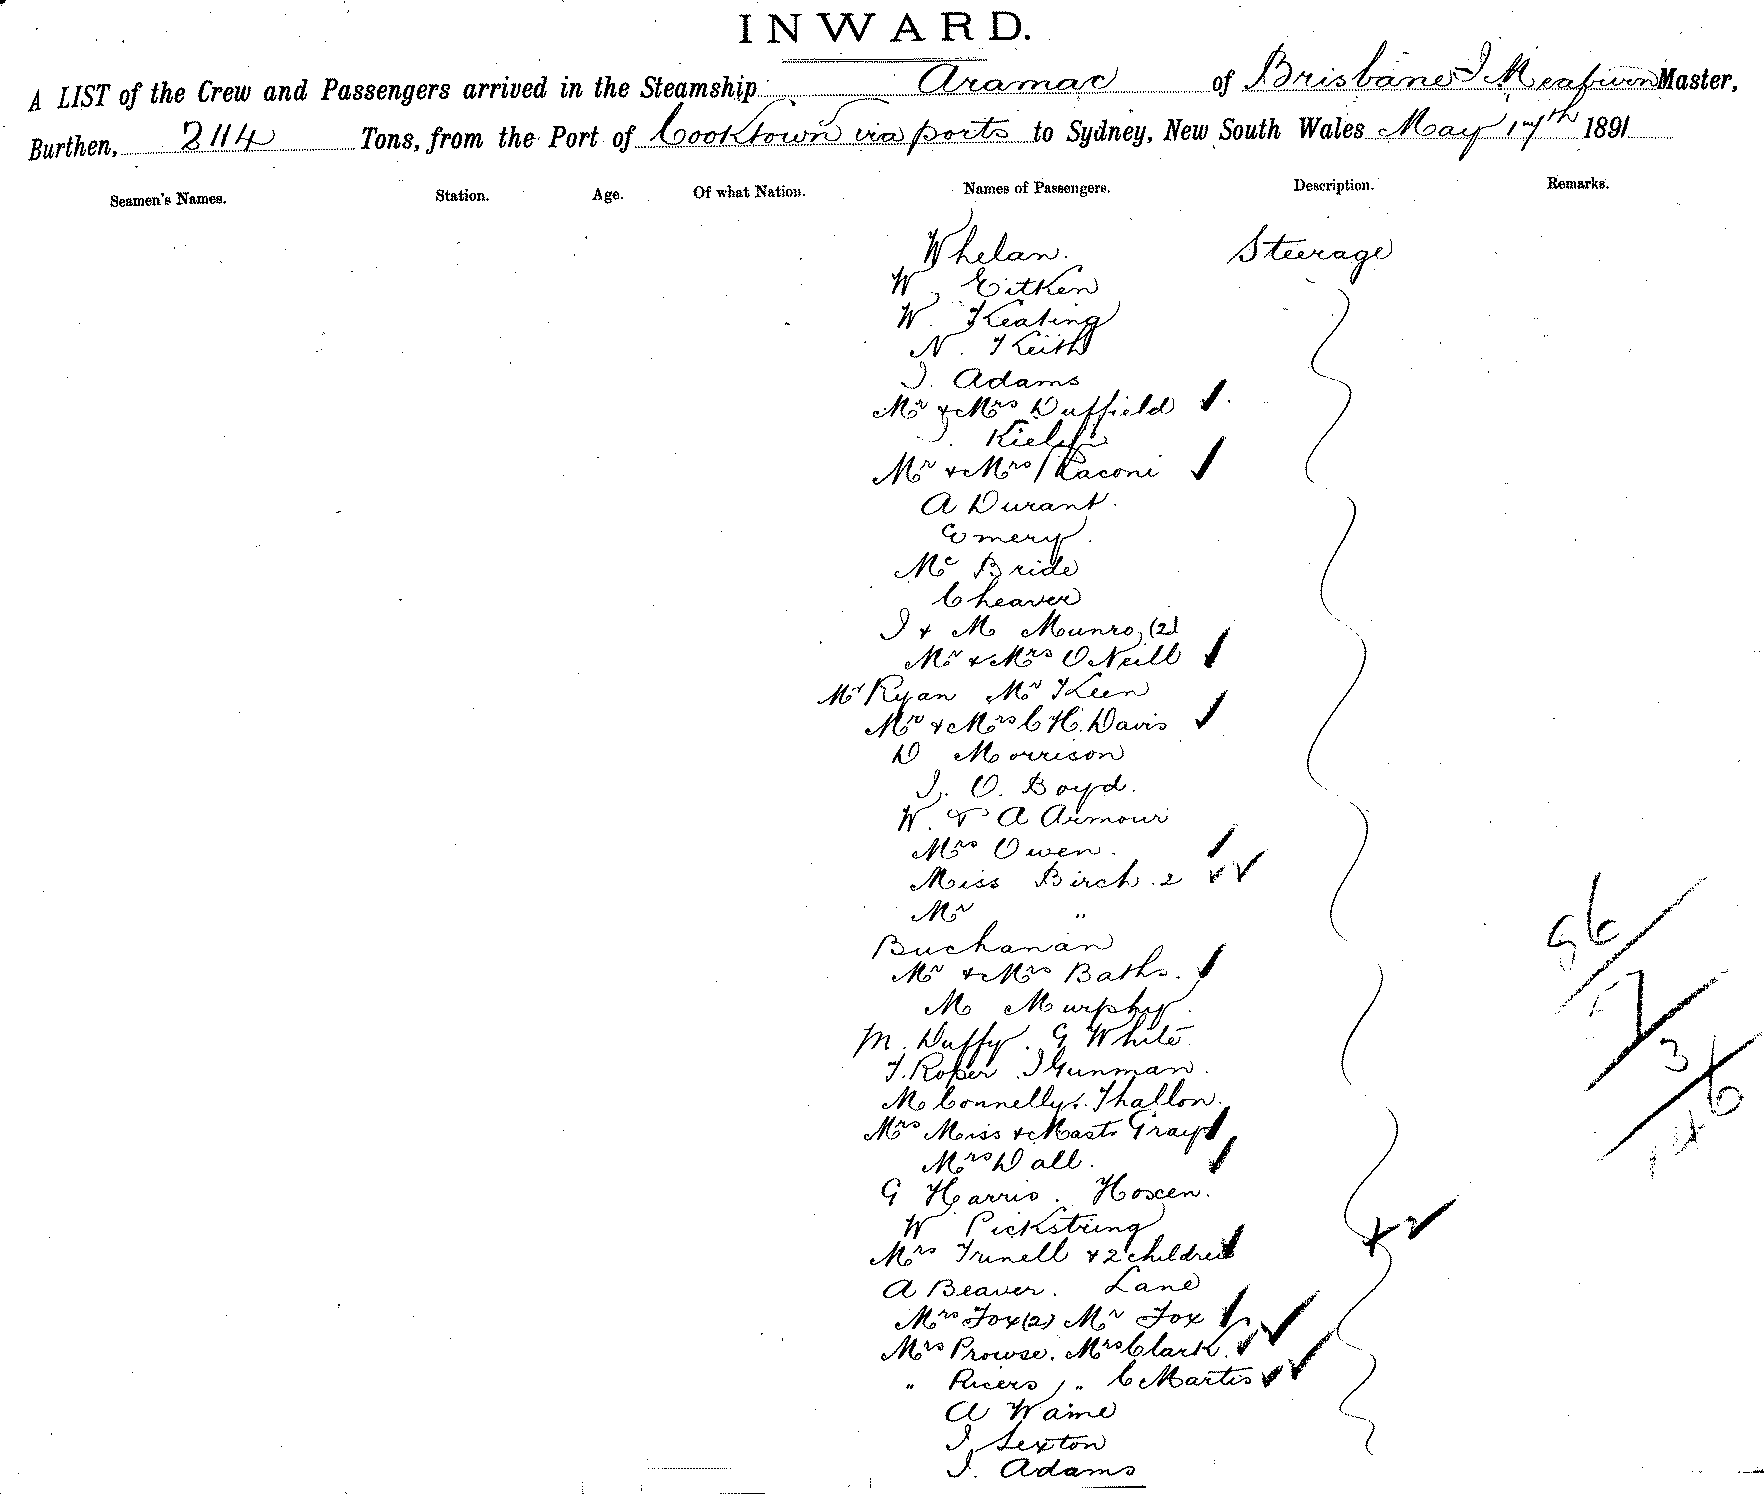 INWARD.
A LIST of the Crew and Passengers arrived in the Steamship Aramac of Brisbane J Master,
Burthen, 2114 Tons, from the Port of Cooktown via ports to Sydney, New South Wales May 17th 1891
Seamen's Names. Station. Age. Of what Nation. Names of Passengers. Description. Remarks.
Whelan. Steerage
W, Eitken
W. Keating
N. Keith
J. Adams
Mr & Mrs Duffield
J.
Mr & Mrs Raconi
A Durant.
Emery.
Mc Bride
Cheaver
J & M Munro, (2)
Mr & Mrs O Neill
Mr Ryan Mr Keen
Mr & Mrs C H. Davis
D Morrison
J. O. Boyd.
W. & A Armour
Mrs Owen.
Miss Birch. 2
Mr "
Buchanan
Mr & Mrs Baths.
M Murphy.
M. Duffy. G White.
T. Roper J Gunman.
M Connelly. Thallon.
Mrs Miss & Mastr Gray
Mrs Wall.
G Harris. Hoxen.
W Pickstring
Mrs Trinell & 2 children
A Beaver. Lane
+2
Mrs Fox (2) Mr Fox
Mrs Prowse. Mrs Clark.
" Ricers, " C Martis
A Waine
J. Sexton
J. Adams
56
17
3
146